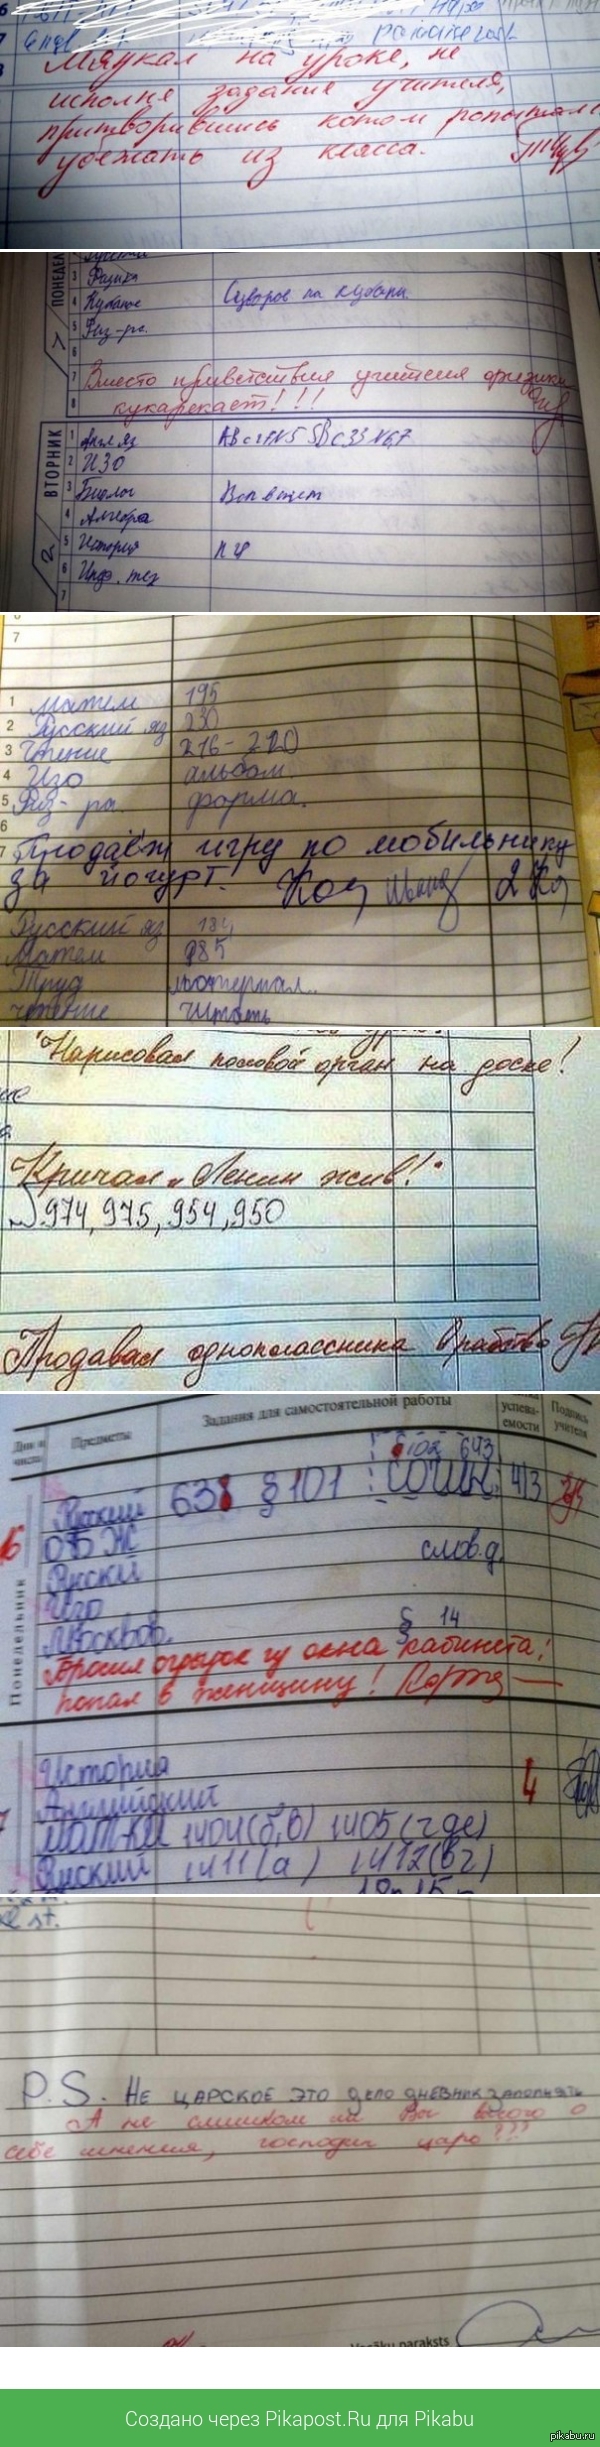 Мяукал на уроке, не
исполня задание учителя,
притворившись котом попытался
убежать из класса.
ПОНЕДЕЛ
3 Физика
4 Кубанов Суворов на Кубани.
5 Физ-ра.
6
7 Вместо приветствия учителя физики
8 кукарекает!!!
ВТОРНИК
1 Англ яз
2 ИЗО
3 Биолог
4 Алгебра
5 История
6 Инф. тех
7
7
1 матем 195
2 Русский яз 230
3 Чтение 216-220
4 Изо альбом.
5 Физ-ра. форма.
6
7 Продаёт игру по мобильнику
за йогурт.
Русский яз 184
Матем 985
Труд материал..
чтение читать
Нарисовал половой орган на доске!
Кричал „Ленин жив!"
974, 975, 954, 950
Продавал одноклассника в рабство
Дни и числа Предметы Задания для самостоятельной работы успева-емости Подпись учителя
102 643
Русский 638 § 101 СОЧИН. 4/3
ОБЖ
Рускй слов.д.
Изо
Москвов. § 14
Понедельник
Бросил огрызок из окна кабинета!
попал в женщину!
История
Английский 4
МАТ-КА 1404(б,в) 1405(где)
Руский 1411(а) 1412(вг)
st.
P.S. НЕ ЦАРСКОЕ ЭТО ДЕЛО ДНЕВНИК ЗАПОЛНЯТЬ
А не слишком ли Вы высого о
себе мнения, господин царь???
Vecāku paraksts
Создано через Pikapost.Ru для Pikabu
pikabu.ru